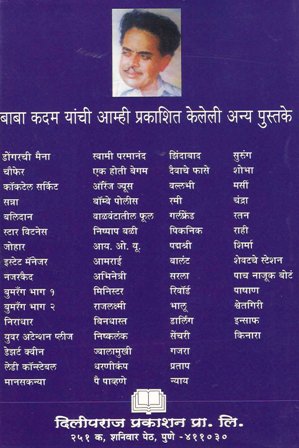 बाबा कदम यांची आम्ही प्रकाशित केलेली अन्य पुस्तके
डोंगरची मैना
चौफेर
कॉकटेल सर्किट
सन्ना
बलिदान
स्टार विटनेस
जोहार
इस्टेट मॅनेजर
नजरकैद
घुमरंग भाग १
घुमरंग भाग २
निराधार
युवर अटेन्शन प्लीज
डेझर्ट क्वीन
लेडी कॉन्स्टेबल
मानसकन्या
स्वामी परमानंद
एक होती बेगम
ऑरेंज ज्यूस
बॉम्बे पोलीस
वाळवंटातील फूल
निष्पाप बळी
आय. ओ. यू.
आमराई
अभिनेत्री
मिनिस्टर
राजलक्ष्मी
बिनधास्त
निष्कलंक
ज्वालामुखी
धरणीकंप
पै पाव्हणे
झिंदाबाद
दैवाचे फासे
वल्लभी
रमी
गर्लफ्रेंड
पिकनिक
पद्मश्री
बालंट
सरला
रिवॉर्ड
भालू
डार्लिंग
सेंचरी
गजरा
प्रताप
न्याय
सुरंग
शोभा
मर्सी
चंद्रा
रतन
राही
शर्मिा
शेवटचे स्टेशन
पाच नाजूक बोटं
पाषाण
श्वेतगिरी
इन्साफ
किनारा
दिलीपराज प्रकाशन प्रा. लि.
२५१ क, शनिवार पेठ, पुणे -४११०३०